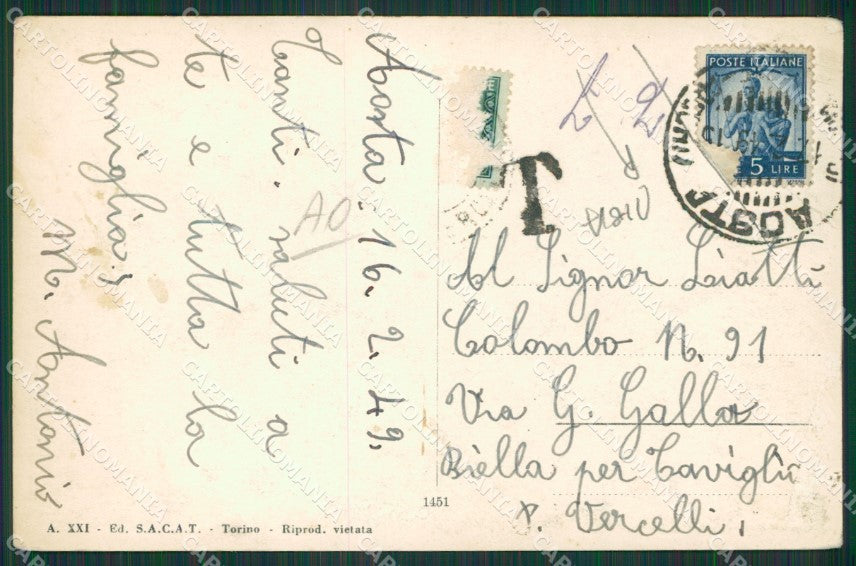 Aosta. 16. 2. 49.
Tanti saluti a
te e tutta la
famiglia!
M. Antonio
AO
A. XXI - Ed. S.A.C.A.T. - Torino - Riprod. vietata
1451
T
POSTE ITALIANE
5 LIRE
AOSTA
Al Signor Liatti
Colombo N. 91
Via G. Galla
Biella per Caviglù
P. Vercelli.